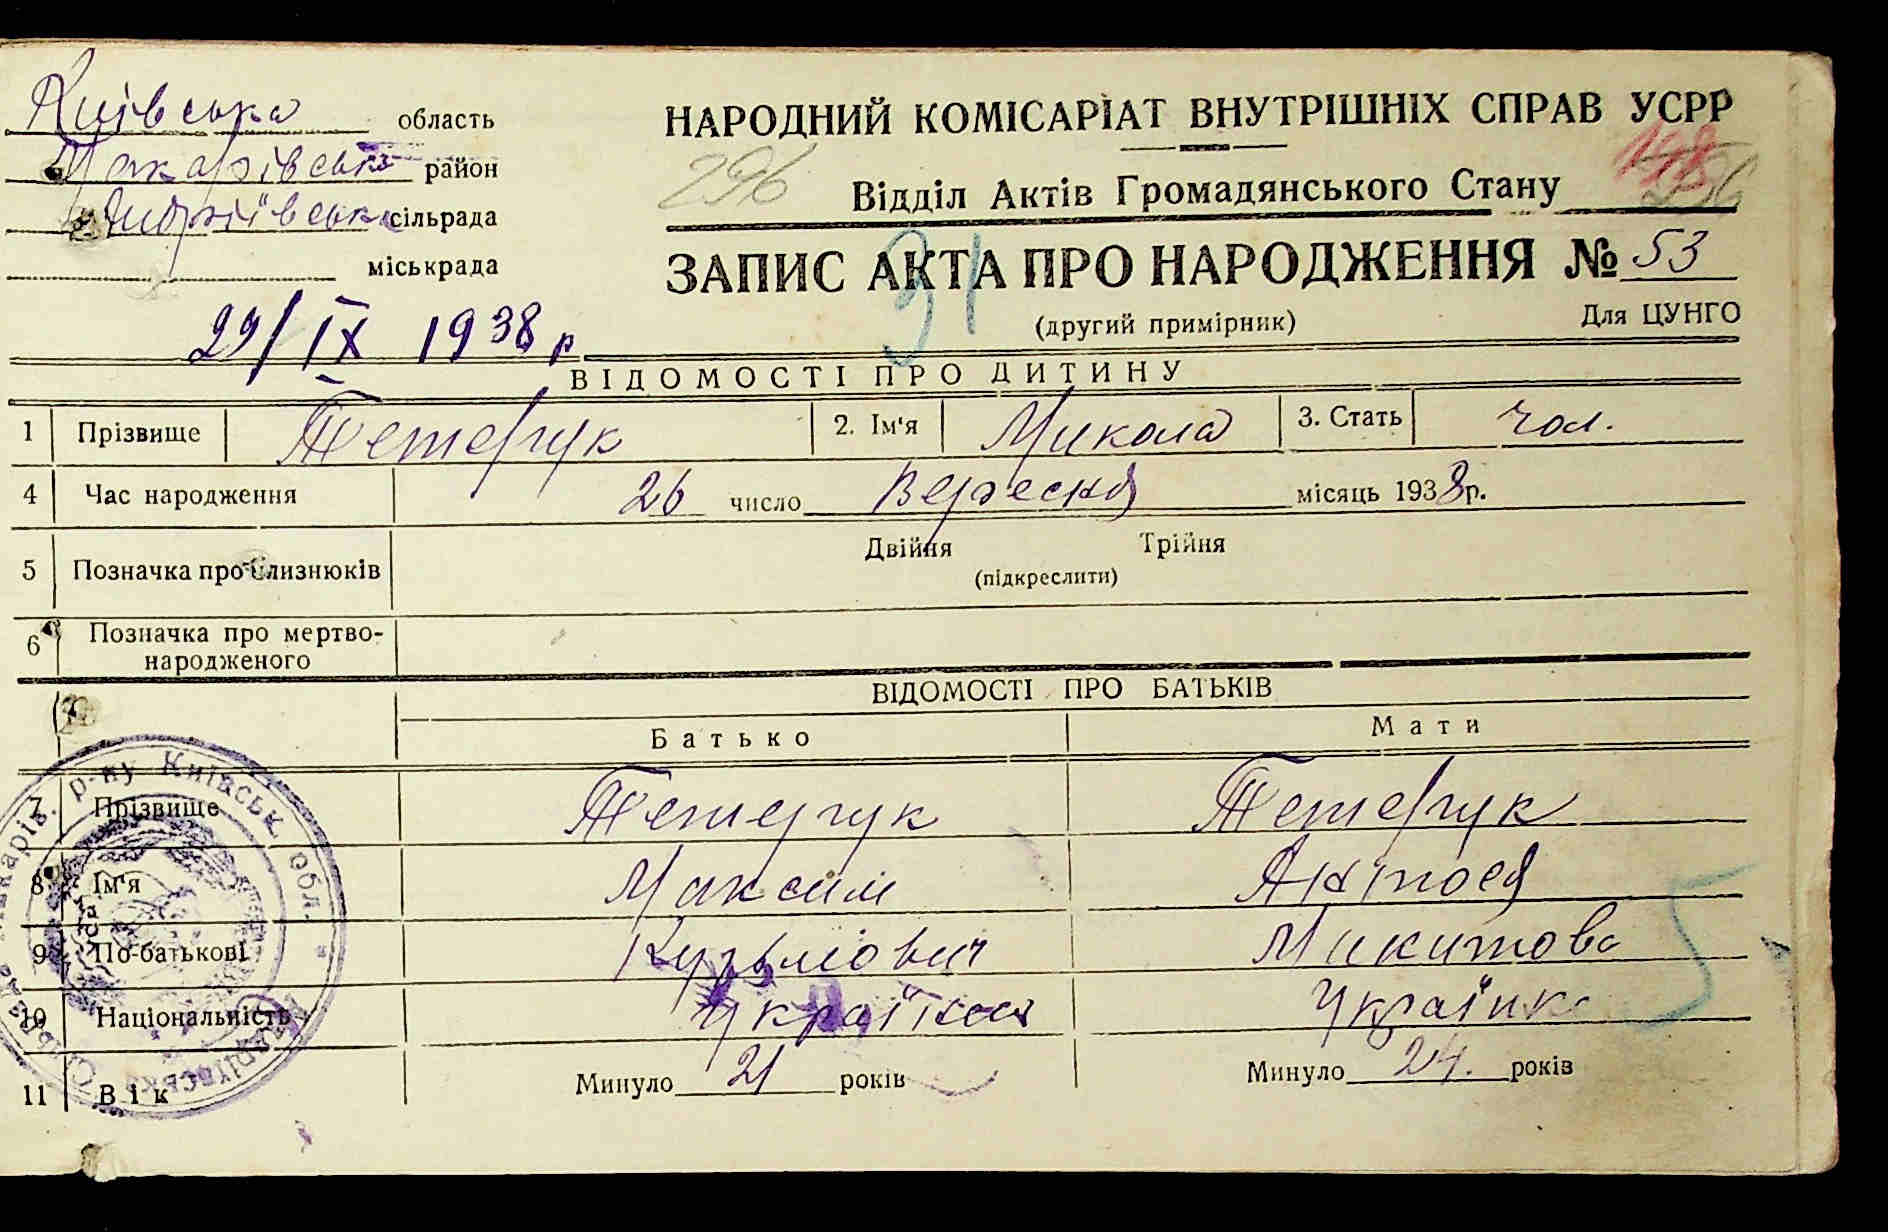 Київська область
Макарівський район
Андріївська сільрада
міськрада
29/IX 1938 р
НАРОДНИЙ КОМІСАРІАТ ВНУТРІШНІХ СПРАВ УСРР
296
198
Відділ Актів Громадянського Стану
ЗАПИС АКТА ПРО НАРОДЖЕННЯ № 53
31
(другий примірник) Для ЦУНГО
ВІДОМОСТІ ПРО ДИТИНУ
1 Прізвище Тетерук 2. Ім'я Микола 3. Стать чол.
4 Час народження 26 число Вересня місяць 1938 р.
5 Позначка про близнюків Двійня Трійня
(підкреслити)
6 Позначка про мертво-
народженого
ВІДОМОСТІ ПРО БАТЬКІВ
Батько Мати
7 Прізвище Тетерук Тетерук
8 Ім'я Максим
9 По-батькові Кузьмович Микитова
10 Національність Українка
11 Вік Минуло 21 років Минуло 24. років
5
Макарів. р-ну Київськ. обл.